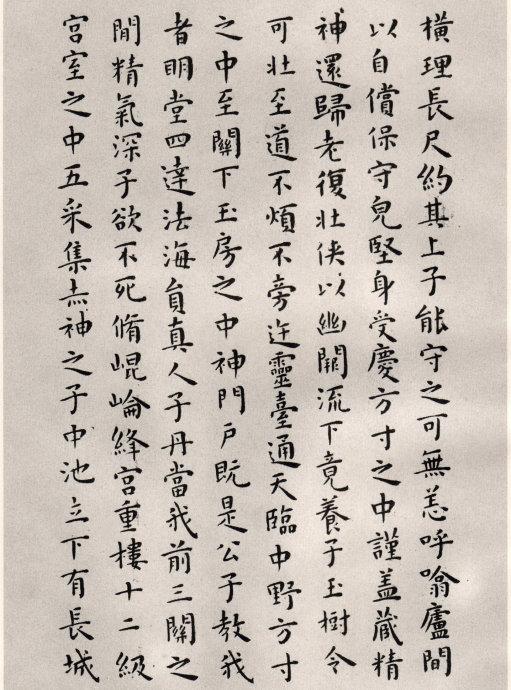 橫理長尺約其上子能守之可無恙呼噏廬間
以自償保守皃堅身受慶方寸之中謹盖藏精
神還歸老復壯侠以幽闕流下竟養子玉樹令
可壯至道不煩不旁迕靈臺通天臨中野方寸
之中至關下玉房之中神門戶既是公子教我
者明堂四達法海貟真人子丹當我前三關之
間精氣深子欲不死脩崐崘絳宫重樓十二級
宫室之中五采集赤神之子中池立下有長城